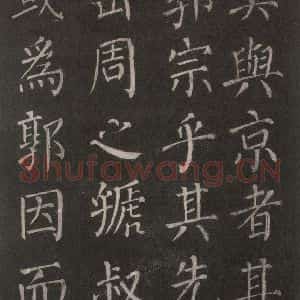 莫與京者其
郭宗乎其先
出周之虢叔
或為郭因而
Shufawang.CN